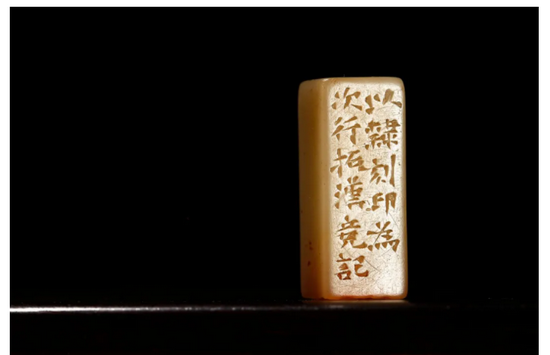 以隸刻印為
次行拓漢竟記